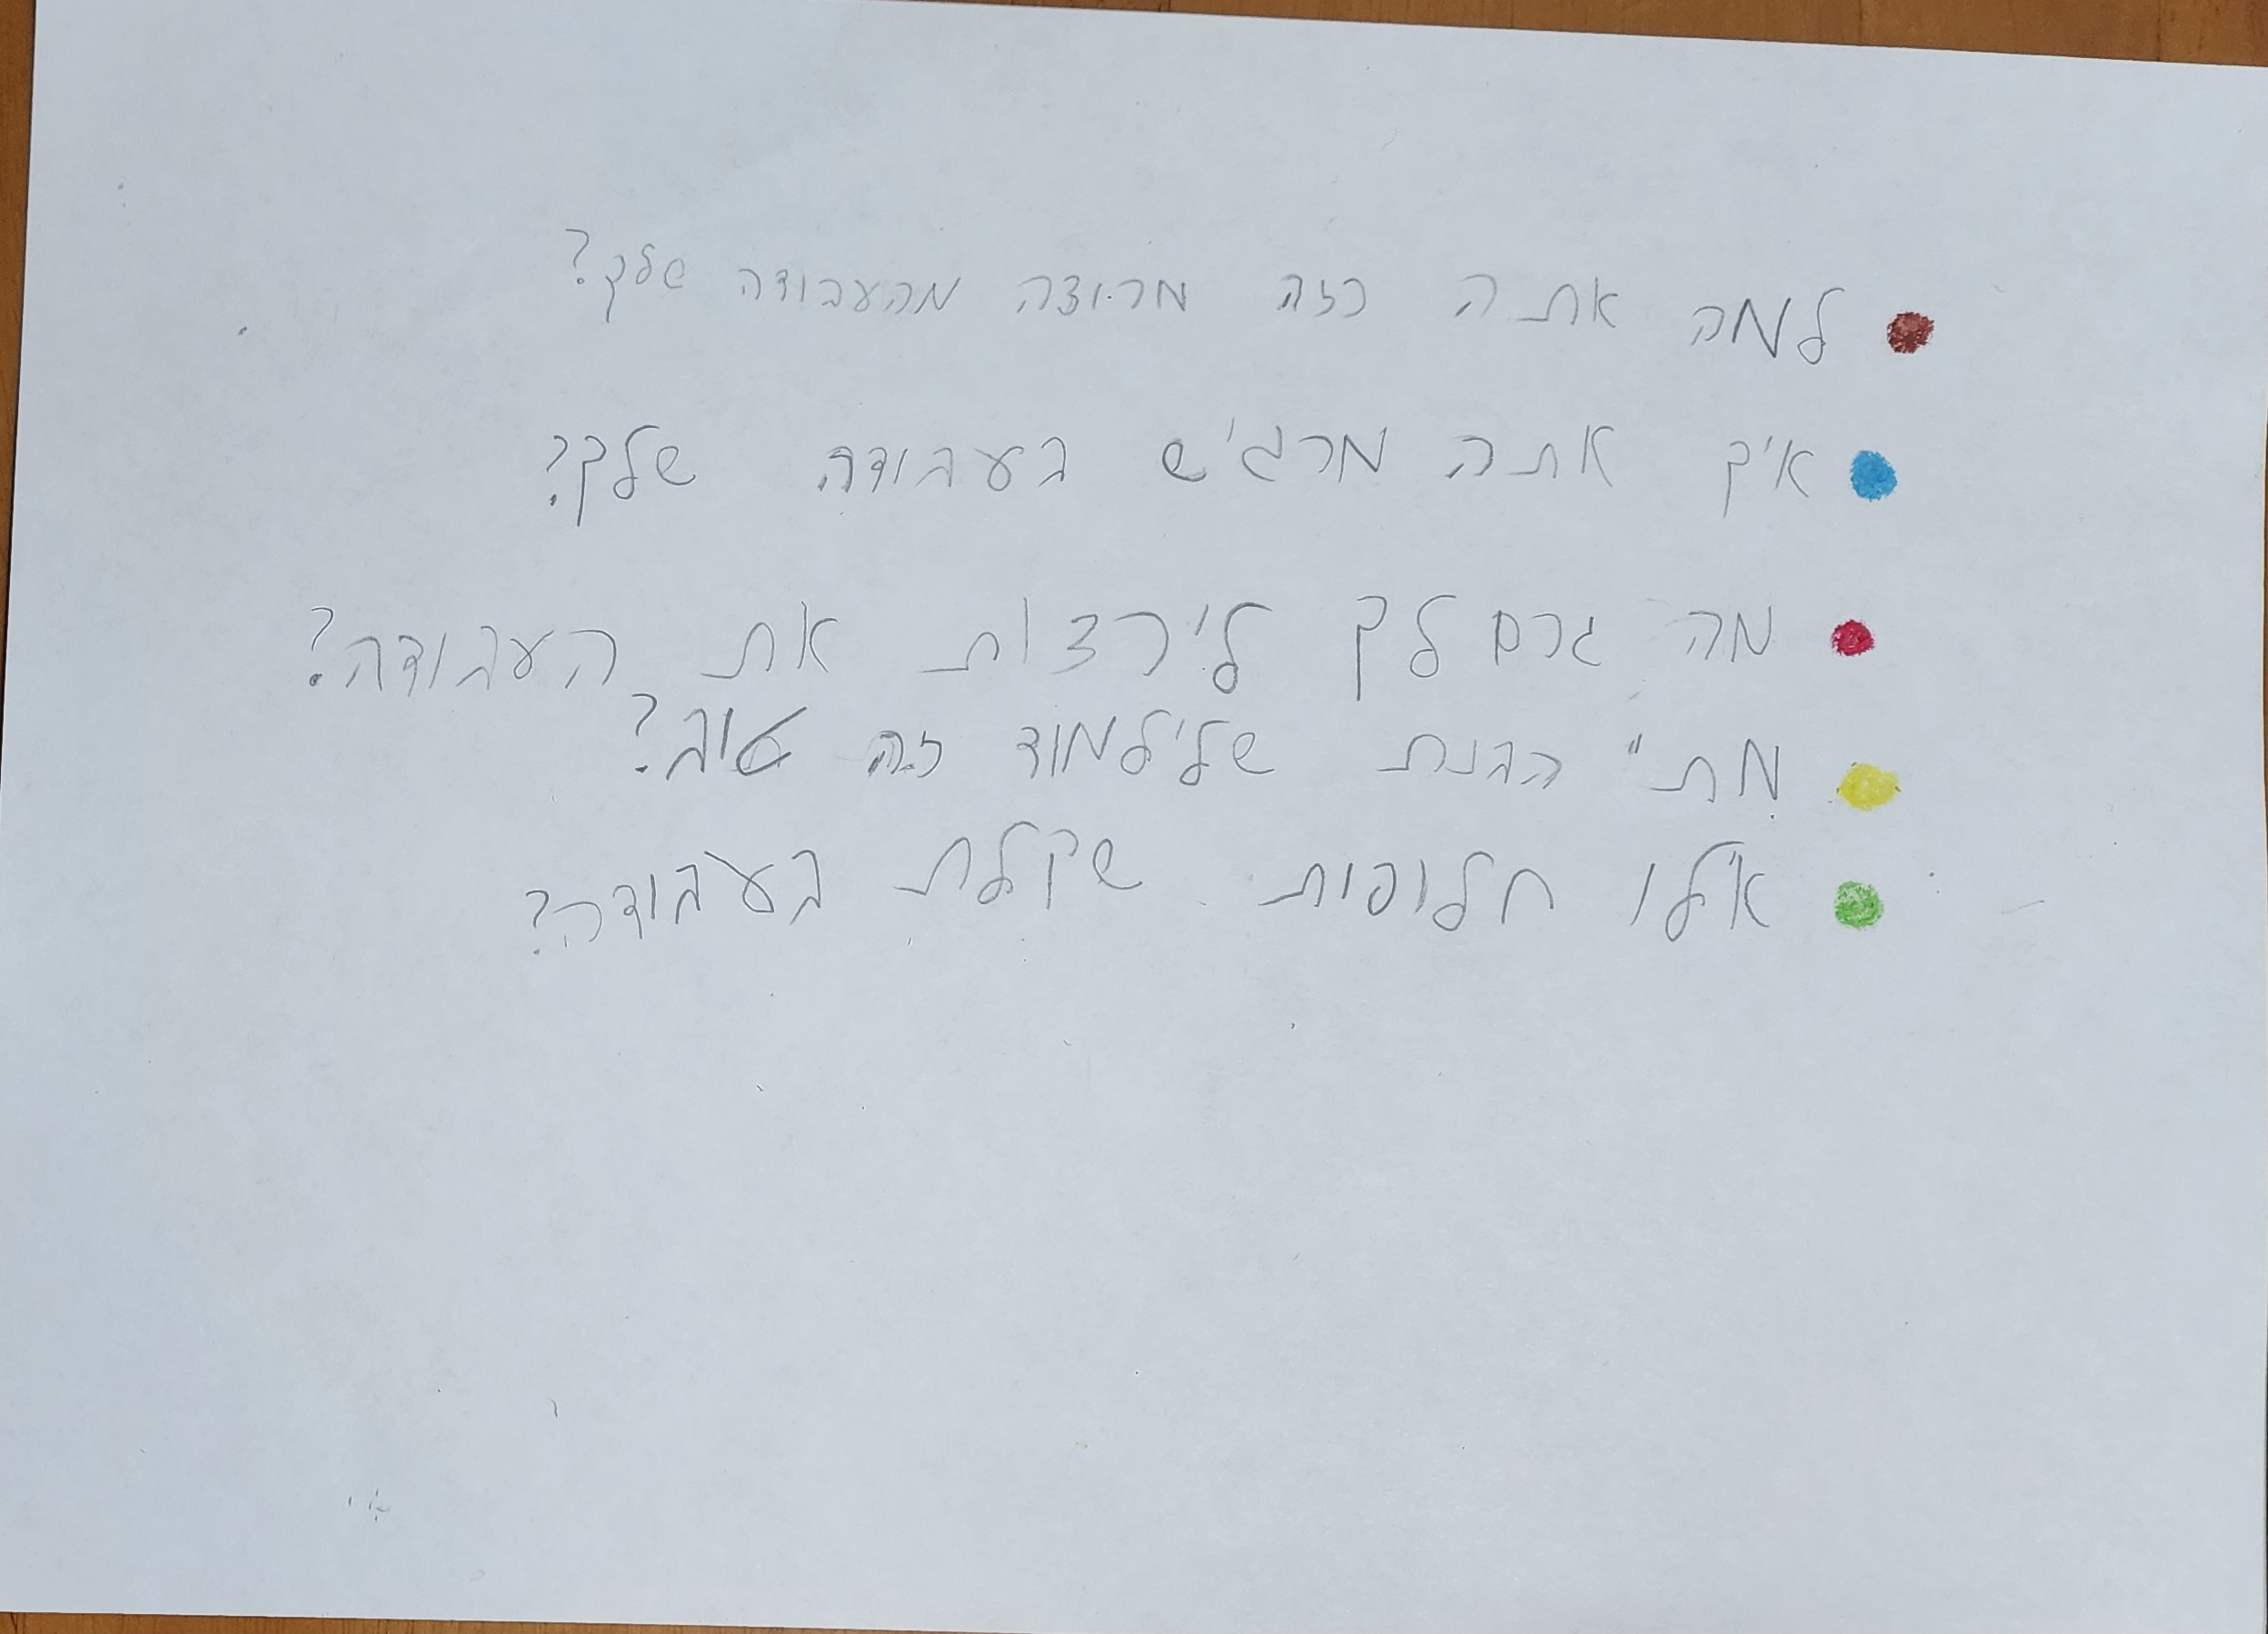 למה אתה כזה מרוצה מהעבודה שלך?
איך אתה מרגיש בעבודה שלך?
מה גרם לך לירצות את העבודה?
מתי הבנת שלילמוד זה טוב?
אילו חלופות שקלת בעבודה?